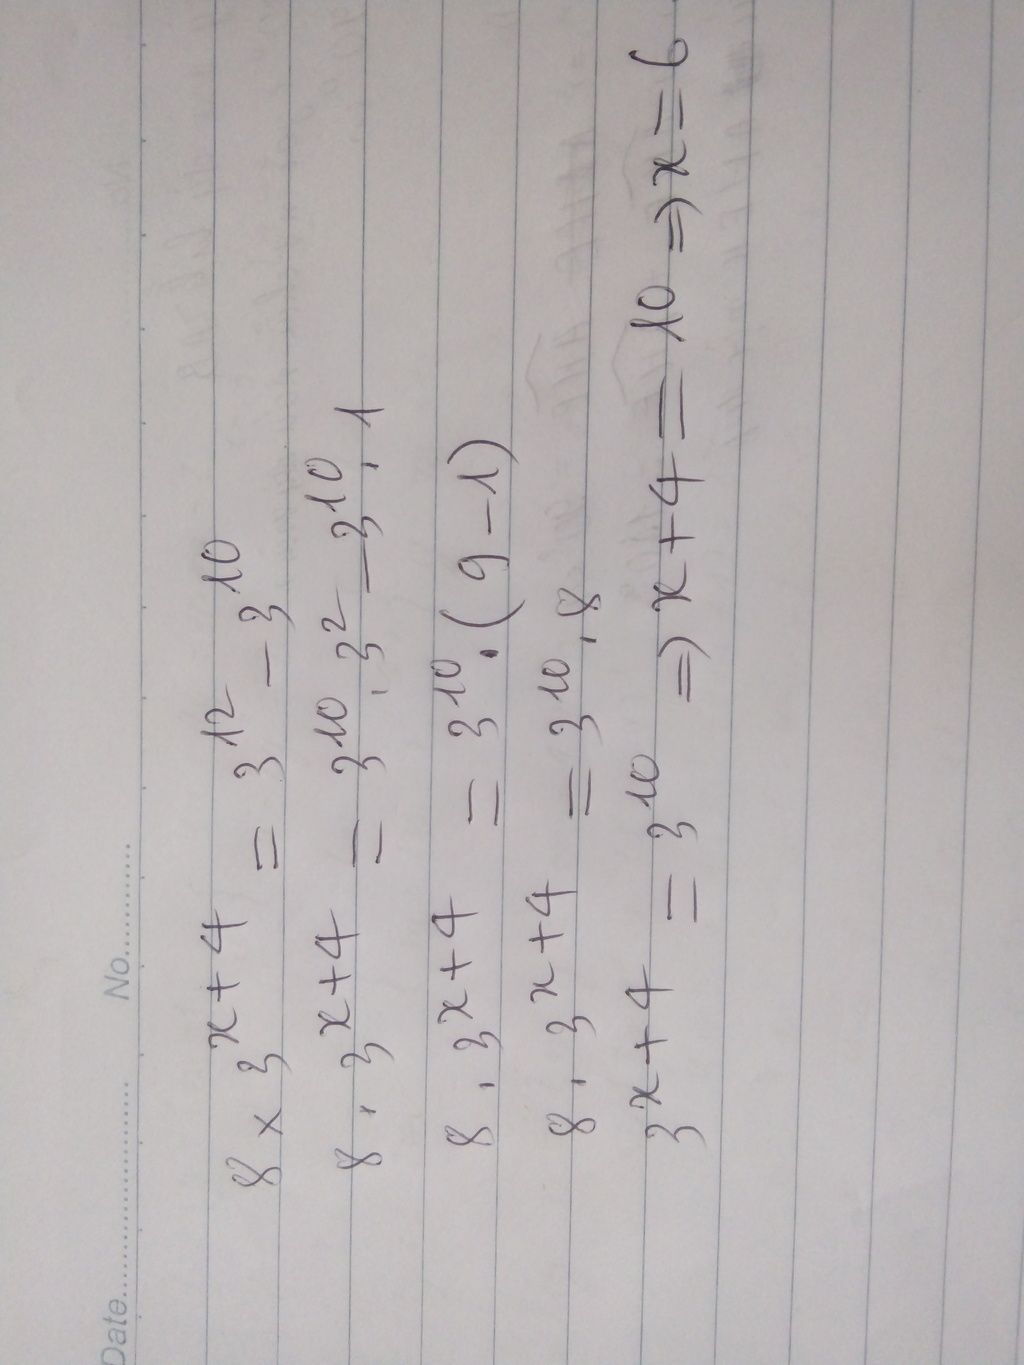 Date.................... No.............
8 × 3^{x+4} = 3^{12} - 3^{10}
8 . 3^{x+4} = 3^{10} . 3^2 - 3^{10} . 1
8 . 3^{x+4} = 3^{10} . (9 - 1)
8 . 3^{x+4} = 3^{10} . 8
3^{x+4} = 3^{10} => x + 4 = 10 => x = 6